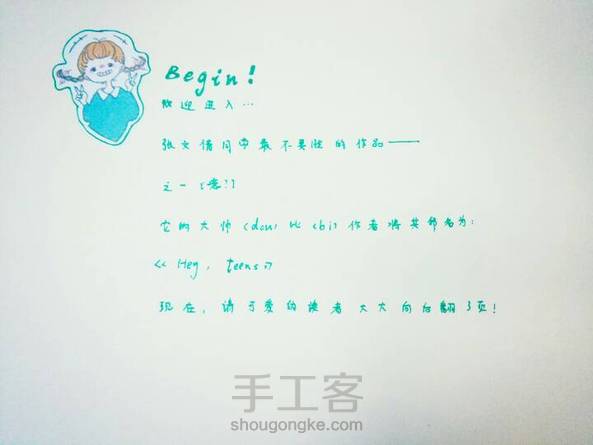 Begin!
欢迎进入…
张文倩同学最不要脸的作品——
之一（憋?!）
它的大师(dou)比(bi)作者将其命名为:
《Hey, teens》
现在，请可爱的读者大大向后翻3页!
手工客
shougongke.com